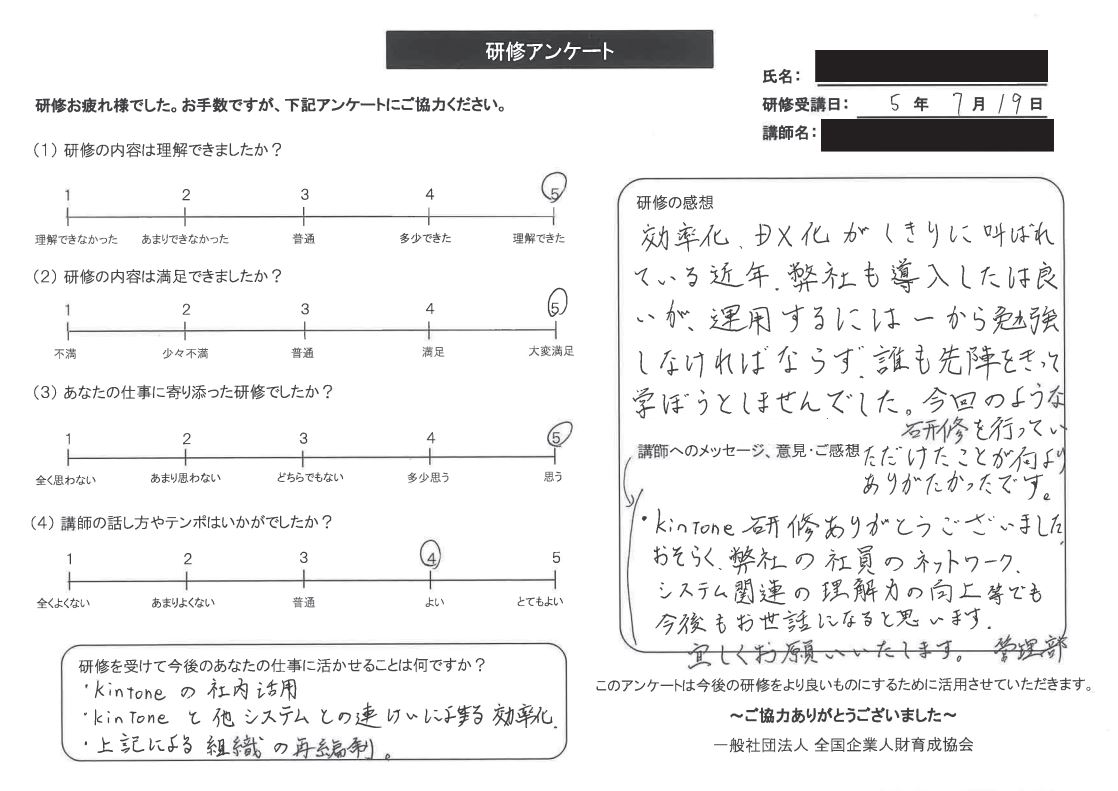 研修アンケート
氏名：
研修受講日： 5 年 7 月 19 日
講師名：
研修お疲れ様でした。お手数ですが、下記アンケートにご協力ください。
（1）研修の内容は理解できましたか？
1 2 3 4 5
理解できなかった あまりできなかった 普通 多少できた 理解できた
（2）研修の内容は満足できましたか？
1 2 3 4 5
不満 少々不満 普通 満足 大変満足
（3）あなたの仕事に寄り添った研修でしたか？
1 2 3 4 5
全く思わない あまり思わない どちらでもない 多少思う 思う
（4）講師の話し方やテンポはいかがでしたか？
1 2 3 4 5
全くよくない あまりよくない 普通 よい とてもよい
研修を受けて今後のあなたの仕事に活かせることは何ですか？
・kintoneの社内活用
・kintoneと他システムとの連けいによる効率化.
・上記による組織の再編制。
研修の感想
効率化、DX化がしきりに叫ばれ
ている近年、弊社も導入したは良
いが、運用するには一から勉強
しなければならず、誰も先陣をきって
学ぼうとしませんでした。今回のような
研修を行ってい
ただけたことが何より
ありがたかったです。
講師へのメッセージ、意見・ご感想
・kintone研修ありがとうございました。
おそらく、弊社の社員のネットワーク、
システム関連の理解力の向上等でも
今後もお世話になると思います.
宜しくお願いいたします。 管理部
このアンケートは今後の研修をより良いものにするために活用させていただきます。
～ご協力ありがとうございました～
一般社団法人 全国企業人財育成協会